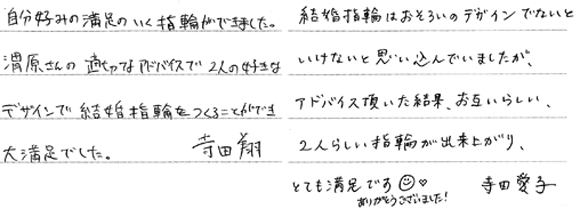 自分好みの満足のいく指輪ができました。
渭原さんの適切なアドバイスで2人の好きな
デザインで結婚指輪をつくることができ
大満足でした。 寺田翔
結婚指輪はおそろいのデザインでないと
いけないと思い込んでいましたが、
アドバイス頂いた結果、お互いらしい、
2人らしい指輪が出来上がり、
とても満足です☺♡ 寺田愛子
ありがとうございました!